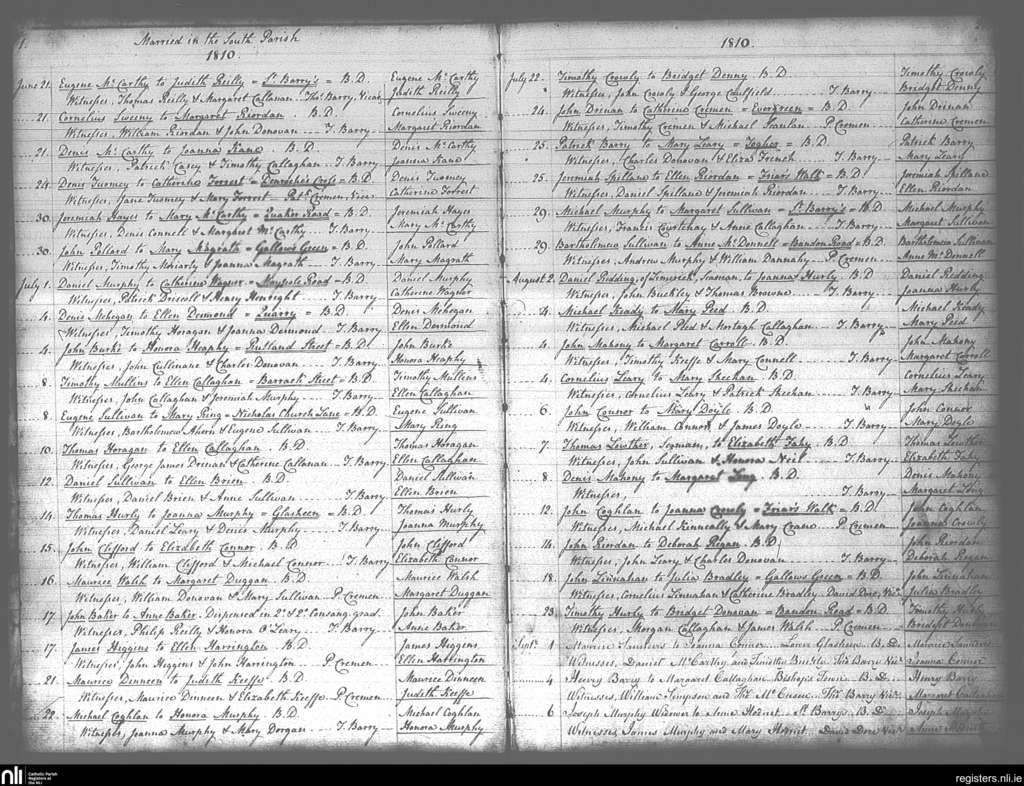 1.
Married in the South Parish
1810.
June 21. Eugene Mc Carthy to Judith Reilly = St. Barry's = B.D. Eugene Mc Carthy
Witnesses, Thomas Reilly & Margaret Callanan. Thos. Barry, Vicar Judith Reilly
21. Cornelius Sweeny to Margaret Riordan. B.D. Cornelius Sweeny
Witnesses, William Riordan & John Donovan ... T. Barry Margaret Riordan
21. Denis Mc Carthy to Joanna Kane. B.D. Denis Mc Carthy
Witnesses, Patrick Casey & Timothy Callaghan T. Barry Joanna Kane
24. Denis Twomey to Catherine Forrest = = B.D. Denis Twomey
Witnesses, Jane Twomey & Mary Forrest Cremen, Vicar Catherine Forrest
30. Jeremiah Hayes to Mary Mc Carthy = Quaker Road = B.D. Jeremiah Hayes
Witnesses, Denis Connell & Margaret Mc Carthy. T. Barry Mary Mc Carthy
30. John Pollard to Mary Magrath = Gallows Green = B.D. John Pollard
Witnesses, Timothy Moriarty & Joanna Magrath. T. Barry Mary Magrath
July 1. Daniel Murphy to Catherine Wagner = Maypole Road = B.D. Daniel Murphy
Witnesses, Patrick Driscoll & Henry Henright T. Barry Catherine Wagner
4. Denis Mehegan to Ellen Desmond = Quarry = B.D. Denis Mehegan
Witnesses, Timothy Horagan & Joanna Desmond. T. Barry Ellen Desmond
4. John Burke to Honora Heaphy = Rutland Street = B.D. John Burke
Witnesses, John Cullinane & Charles Donovan .... T. Barry Honora Heaphy
8. Timothy Mullins to Ellen Callaghan = Barrack Street = B.D. Timothy Mullens
Witnesses, John Callaghan & Jeremiah Murphy. T. Barry Ellen Callaghan
8. Eugene Sullivan to Mary Ring = Nicholas Church Lane = B.D. Eugene Sullivan
Witnesses, Bartholomew Ahern & Eugene Sullivan T. Barry Mary Ring
10. Thomas Horagan to Ellen Callaghan. B.D. Thomas Horagan
Witnesses, George James Drenan & Catherine Callanan. T. Barry Ellen Callaghan
12. Daniel Sullivan to Ellen Brien. B.D. Daniel Sullivan
Witnesses, Daniel Brien & Anne Sullivan T. Barry Ellen Brien
14. Thomas Hurly to Joanna Murphy = Glasheen = B.D. Thomas Hurly
Witnesses, Daniel Leary & Denis Murphy T. Barry Joanna Murphy
15. John Clifford to Elizabeth Connor. B.D. John Clifford
Witnesses, William Clifford & Michael Connor T. Barry Elizabeth Connor
16. Maurice Walsh to Margaret Duggan. B.D. Maurice Walsh
Witnesses, William Donovan & Mary Sullivan P. Cremen Margaret Duggan
17. John Baker to Anne Baker. Dispensed in 2o. & 2o. Consang. grad. John Baker
Witnesses, Philip Reilly & Honora O'Leary ... T. Barry Anne Baker
17. James Higgens to Ellen Harrington. B.D. James Heggens
Witnesses, John Heggens & John Harrington. P. Cremen Ellen Harrington
21. Maurice Dinneen to Judith Keeffe. B.D. Maurice Dinneen
Witnesses, Maurice Dinneen & Elizabeth Keeffe. P. Cremen Judith Keeffe
22. Michael Coghlan to Honora Murphy. B.D. Michael Coghlan
Witnesses, Joanna Murphy & Mary Dorgan. T. Barry Honora Murphy
1810.
July 22. Timothy Crowly to Bridget Denny. B.D. Timothy Crowly
Witnesses, John Crowly & George Caulfield. T. Barry Bridget Denny
24. John Drenan to Catherine Cremen = Evergreen = B.D. John Drenan
Witnesses, Timothy Cremen & Michael P. Cremen Catherine Cremen
25. Patrick Barry to Mary Leary = = B.D. Patrick Barry
Witnesses, Charles Donovan & Eliza French T. Barry Mary Leary
25. Jeremiah Spillane to Ellen Riordan = Friar's Walk = B.D. Jeremiah Spillane
Witnesses, Daniel Spillane & Jeremiah Riordan T. Barry Ellen Riordan
29. Michael Murphy to Margaret Sullivan = St. Barry's = B.D. Michael Murphy
Witnesses, Francis Courtenay & Anne Callaghan T. Barry Margaret Sullivan
29. Bartholomew Sullivan to Anne Mc Donnell = Bandon Road = B.D. Bartholomew Sullivan
Witnesses, Andrew Murphy & William Dannahy. P. Cremen Anne Mc Donnell
August 2. Daniel Redding, of Limerick, Seaman, to Joanna Hurly. B.D. Daniel Redding
Witnesses, John Buckley & Thomas Browne T. Barry Joanna Hurly
4. Michael Ready to Mary Peed. B.D. Michael Ready
Witnesses, Michael Pled & Mortagh Callaghan T. Barry Mary Peed
4. John Mahony to Margaret Carroll. B.D. John Mahony
Witnesses, Timothy Keeffe & Mary Connell T. Barry Margaret Carroll
4. Cornelius Leary to Mary Sheehan. B.D. Cornelius Leary
Witnesses, Cornelius Leary & Patrick Sheehan T. Barry Mary Sheehan
6. John Connor to Mary Doyle. B.D. John Connor
Witnesses, William Connor & James Doyle T. Barry Mary Doyle
7. Thomas Lowther, to Elizabeth Fahy. B.D. Thomas Lowther
Witnesses, John Sullivan & Honora Neil T. Barry Elizabeth Fahy
8. Denis Mahony to Margaret Long. B.D. Denis Mahony
Witnesses, T. Barry Margaret Long
12. John Coghlan to Joanna Crowly = Friar's Walk = B.D. John Coghlan
Witnesses, Michael Kenneally & Mary Crane. P. Cremen Joanna Crowly
14. John Riordan to Deborah Regan. B.D. John Riordan
Witnesses, John Leary & Charles Donovan T. Barry Deborah Regan
18. John Linnahan to Julia Bradley = Gallows Green = B.D. John Linnahan
Witnesses, Cornelius Linnahan & Catherine Bradley. David Dore, Vicr. Julia Bradley
23. Timothy Hurly to Bridget Donovan = Bandon Road = B.D. Timothy Hurly
Witnesses, Morgan Callaghan & James Walsh P. Cremen Bridget Donovan
Sept. 1 Maurice Saunders to Joanna Connor. Lower Glasheen. B.D. Maurice Saunders
Witnesses, Daniel Mc Carthy and Timothy Buckly. Thos Barry Vicr. Joanna Connor
4 Henry Barry to Margaret Callaghan Bishop's Town. B.D. Henry Barry
Witnesses, William Simpson and Thos. Mc Thos. Barry Vicr. Margaret Callaghan
6 Joseph Murphy Widower to Anne Hodnet. St. Barrys. B.D. Joseph Murphy
Witnesses James Murphy and Mary Hodnet. David Dore Vicr. Anne Hodnet
nli
Catholic Parish
Registers at
the NLI
registers.nli.ie